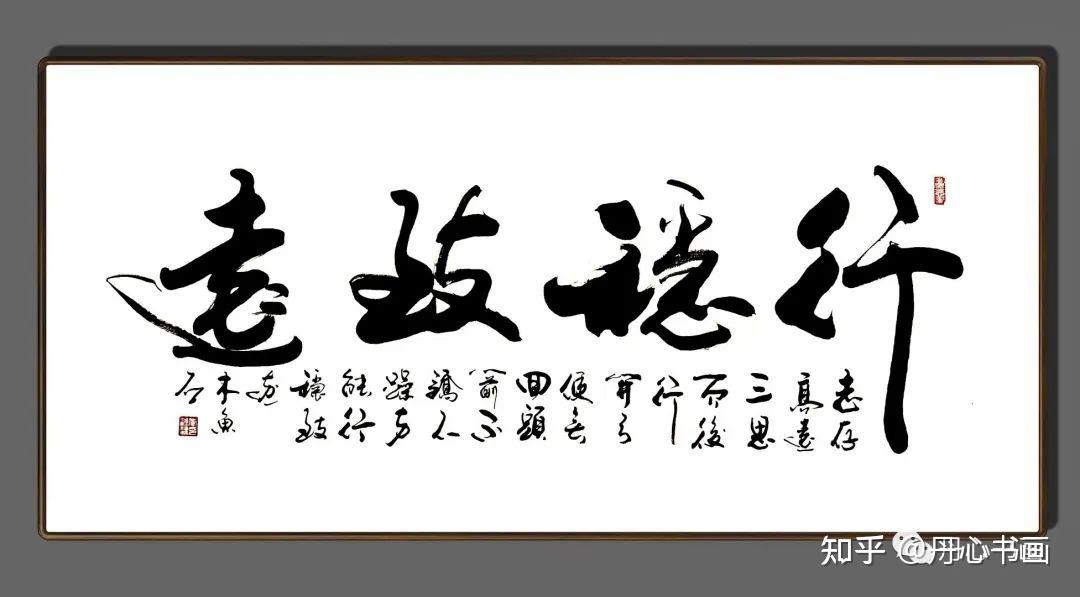 行穩致遠
志存
高遠
三思
而後
行
開弓
便無
回頭
箭不
驕不
躁方
能行
穩致
遠
木魚
石
知乎 @丹心书画